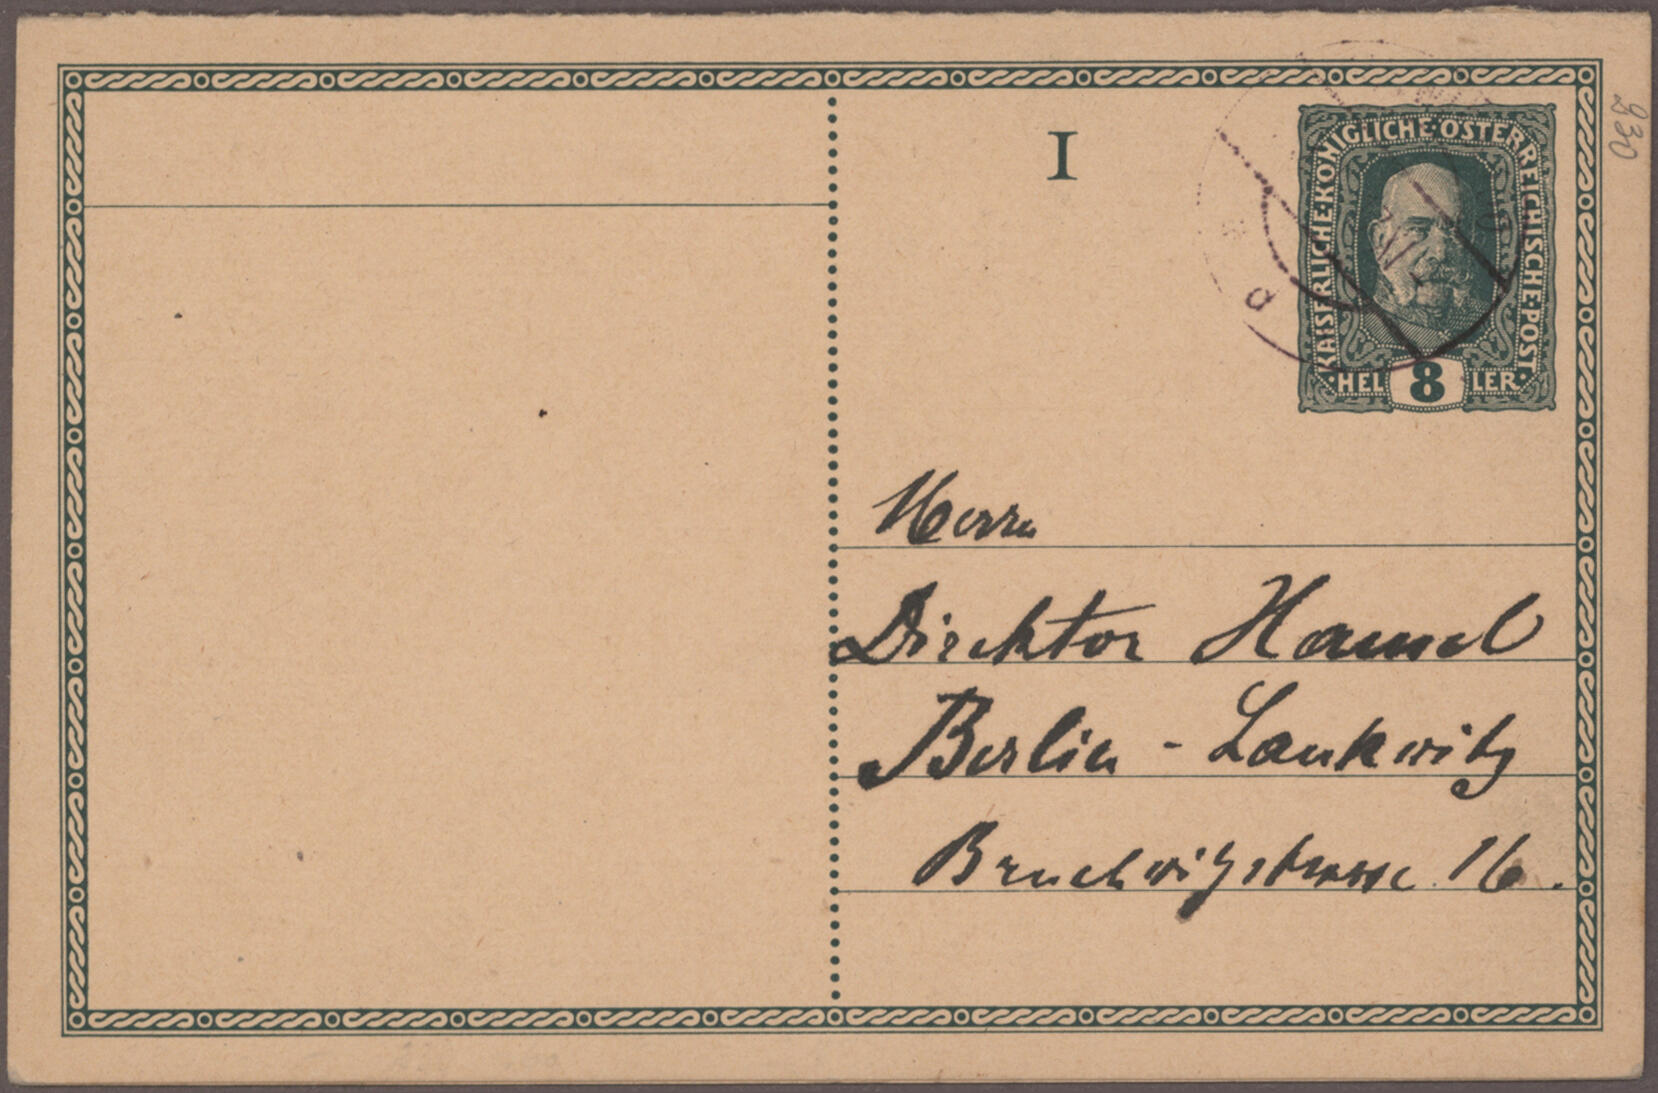 I
KAISERLICHE·KÖNIGLICHE·ÖSTERREICHISCHE·POST
HEL 8 LER
d
230
Herrn
Direktor Hamel
Berlin - Lankwitz
Bruchwitzstrasse 16.